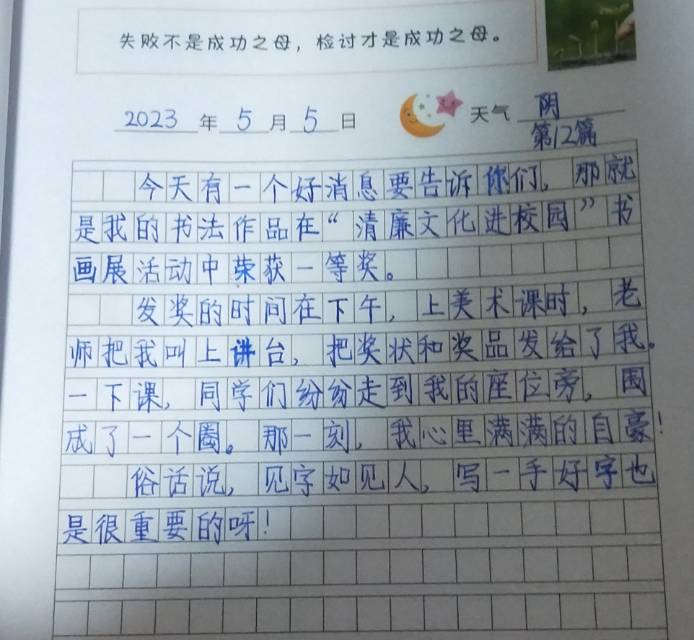 失败不是成功之母，检讨才是成功之母。
2023 年 5 月 5 日 天气 阴
第12篇
今天有一个好消息要告诉你们，那就
是我的书法作品在“清廉文化进校园”书
画展活动中荣获一等奖。
发奖的时间在下午，上美术课时，老
师把我叫上讲台，把奖状和奖品发给了我。
一下课，同学们纷纷走到我的座位旁，围
成了一个圈。那一刻，我心里满满的自豪！
俗话说，见字如见人，写一手好字也
是很重要的呀！